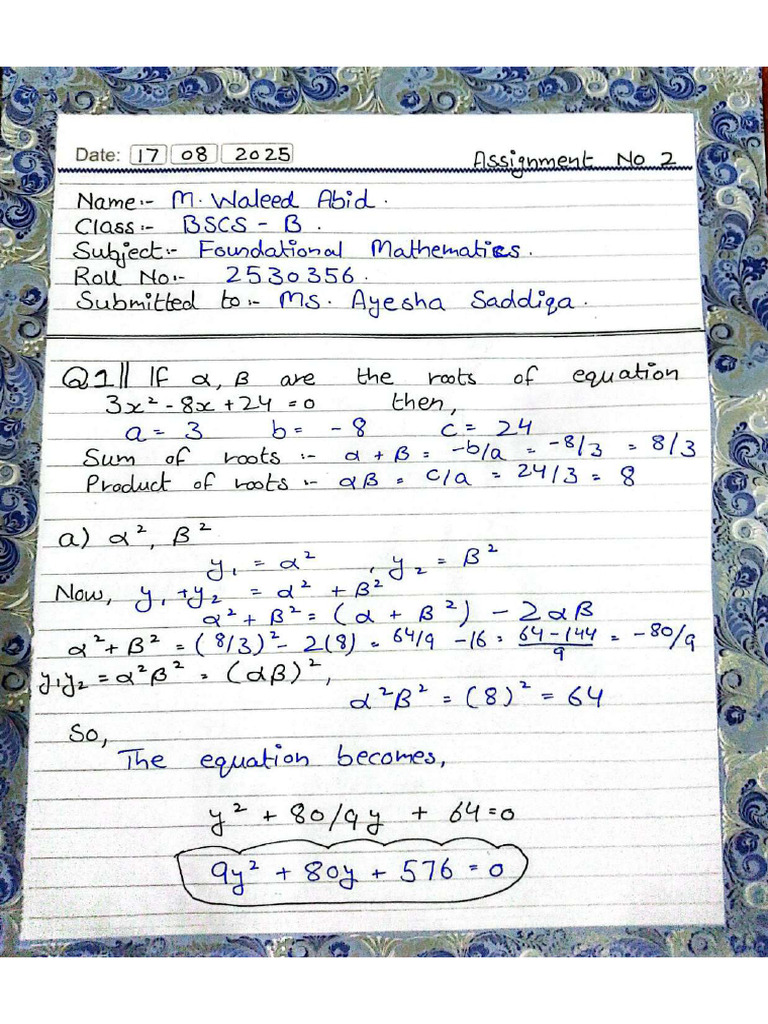 Date: 17 08 2025 Assignment No 2
Name:- M. Waleed Abid.
Class:- BSCS - B.
Subject:- Foundational Mathematics.
Roll No:- 2530356.
Submitted to:- Ms. Ayesha Saddiqa.
Q1|| If α, β are the roots of equation
3x² - 8x + 24 = 0 then,
a = 3 b = -8 c = 24
Sum of roots :- α + β = -b/a = -8/3 = 8/3
Product of roots :- αβ = c/a = 24/3 = 8
a) α², β²
y₁ = α² , y₂ = β²
Now, y₁ + y₂ = α² + β²
α² + β² = (α + β²) - 2αβ
α² + β² = (8/3)² - 2(8) = 64/9 - 16 = 64 - 144 / 9 = -80/9
y₁y₂ = α²β² = (αβ)²,
α²β² = (8)² = 64
So,
The equation becomes,
y² + 80/9y + 64 = 0
9y² + 80y + 576 = 0